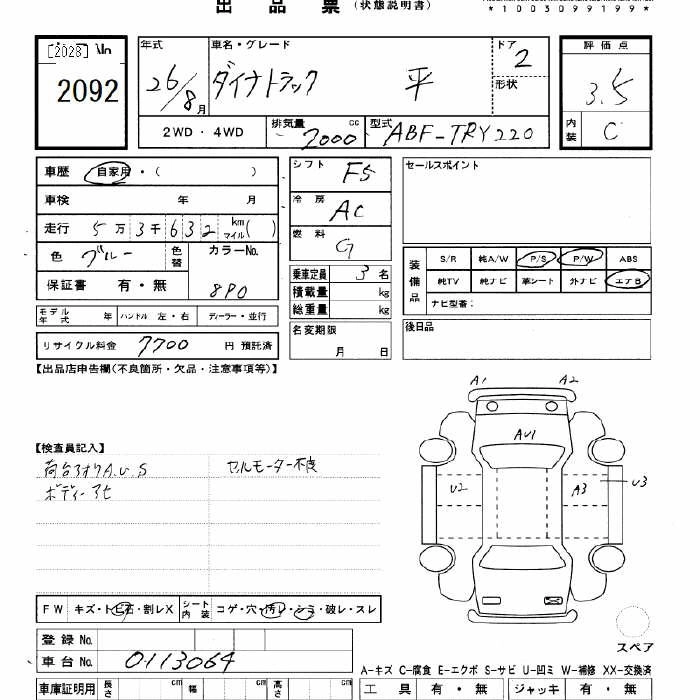 出品票(状態説明書)
*1003099199*
[2028]
2092
年式
26/8月
車名・グレード
ダイナトラック 平
ドア
2
形状
評価点
3.5
内装 C
2WD・4WD
排気量 2000 cc
型式 ABF-TRY220
車歴 自家用・( )
車検 年 月
走行 5万3千632 km マイル( )
色 ブルー 色替 カラーNo. 8P0
保証書 有・無
モデル年式 年 ハンドル 左・右 ディーラー・並行
リサイクル料金 7700 円 預託済
シフト F5
冷房 AC
燃料 G
乗車定員 3 名
積載量 kg
総重量 kg
名変期限
月 日
セールスポイント
装備品
S/R 純A/W P/S P/W ABS
純TV 純ナビ 革シート 外ナビ エアB
ナビ型番:
後日品
【出品店申告欄(不良箇所・欠品・注意事項等)】
【検査員記入】
荷台アオリA.U.S
セルモーター不良
ボディーアセ
A1 A2
AU1
U2 A3 U3
FW キズ・トビ石・割レX シート内装 コゲ・穴・汚レ・シミ・破レ・スレ
スペア
登録No.
車台No. 0113064
A-キズ C-腐食 E-エクボ S-サビ U-凹ミ W-補修 XX-交換済
車庫証明用 長さ cm 幅 cm 高さ cm
工具 有・無 ジャッキ 有・無